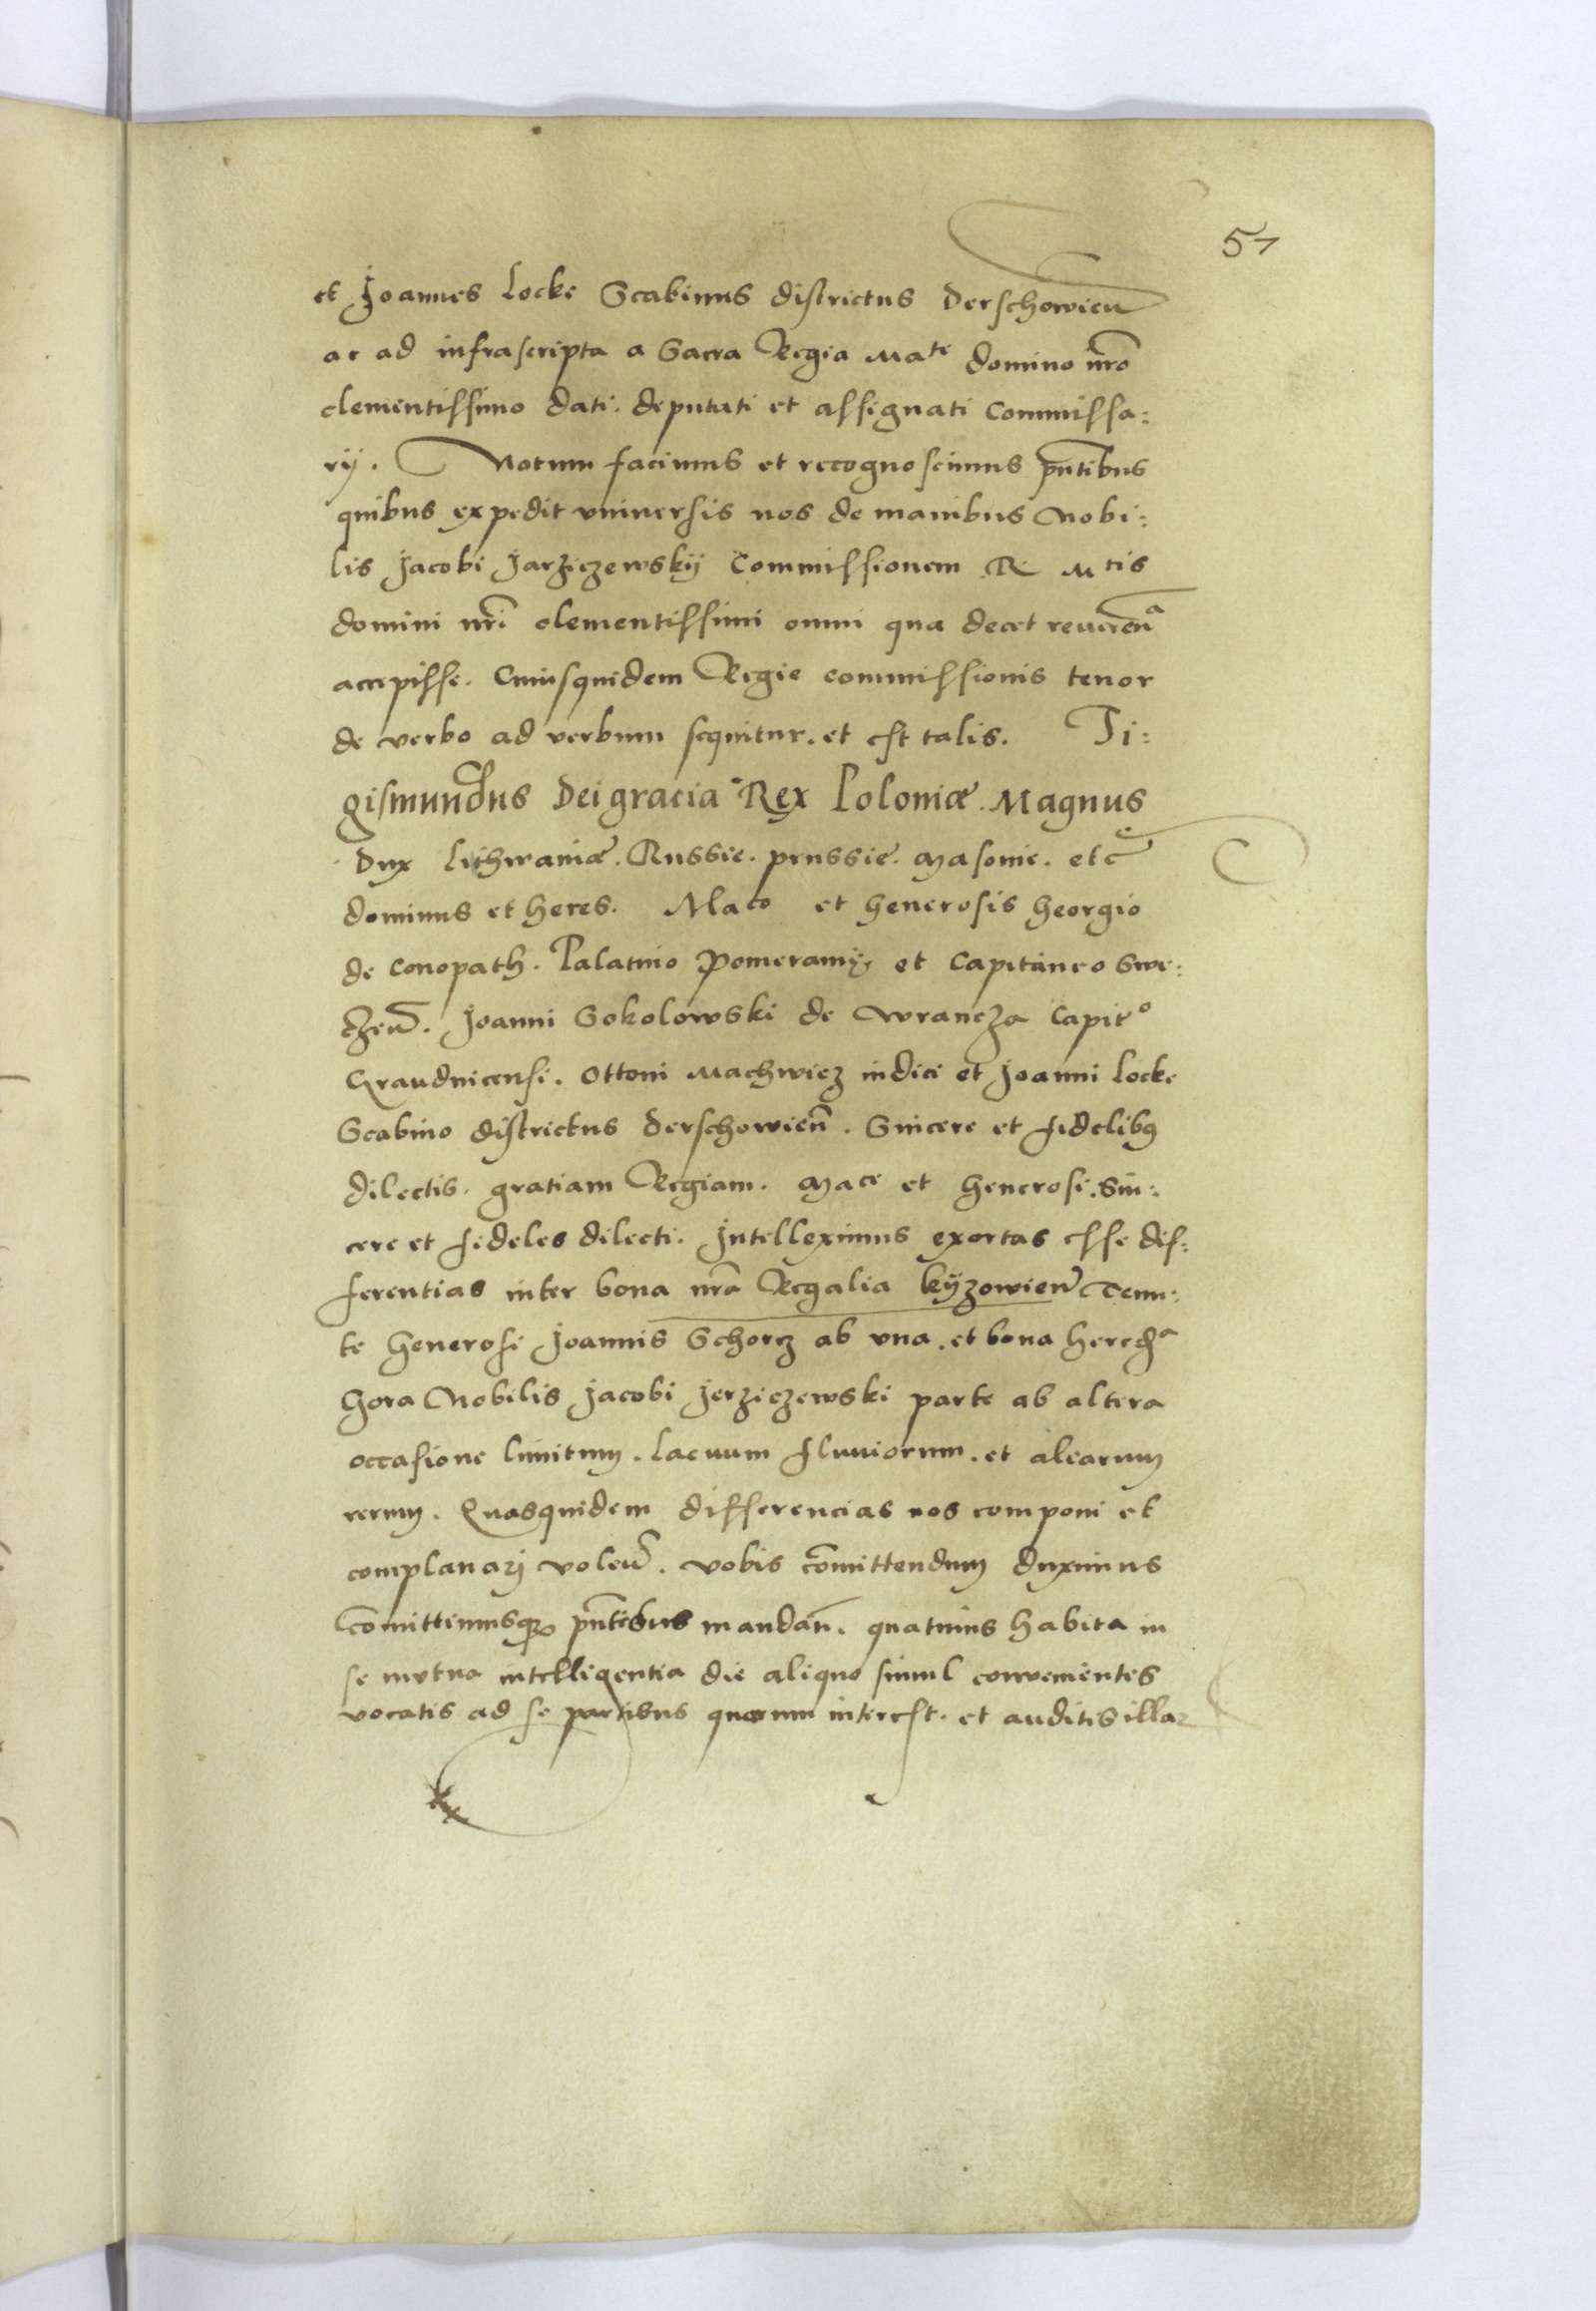 51
et Joannes Locke Scabinus districtus Derschowien̄
ac ad infrascripta a Sacra Regia Mate domino nr̄o
clementissimo dati. deputati et assignati Commissa:
rij. Notum facimus et recognoscimus pn̄tibus
quibus expedit vniuersis nos de manibus Nobi:
lis Jacobi Jarziczewskij Commissionem R Mtis
domini nr̄i clementissimi omni qua decet reueren̄a
accepisse. Cuiusquidem Regie commissionis tenor
de verbo ad verbum sequitur. et est talis. Si:
gismundus Dei gracia Rex Poloniæ. Magnus
Dux Lithwaniæ. Russie. prussie. Masouie. etc̄
dominus et heres. Maco et Generosis Georgio
de Conopath. Palatino Pomeranię, et Capitaneo Swe:
czen̄. Joanni Sokolowski de Wrancza Capito
Graudnicensi. Ottoni Machwicz iudici et Joanni Locke
Scabino districtus Derschowien̄. Sincere et fidelibus
dilectis. gratiam Regiam. Mace et Generosi. Sin:
cere et fideles dilecti. Intelleximus exortas esse dif:
ferentias inter bona nr̄a Regalia kyzowien̄ Tenu:
te Generosi Joannis Schorcz ab vna. et bona hereda
Gora Nobilis Jacobi Jerziczewski parte ab altera
occasione limitum. lacuum fluuiorum. et aliarum
rerum. Quasquidem differencias nos componi et
complanarj volen̄. vobis com̄ittendum duximus
Com̄ittimusque pn̄tibus mandan̄. quatinus habita in
se mutua intelligentia die aliquo simul conuenientes
vocatis ad se partibus quorum interest. et auditis illar